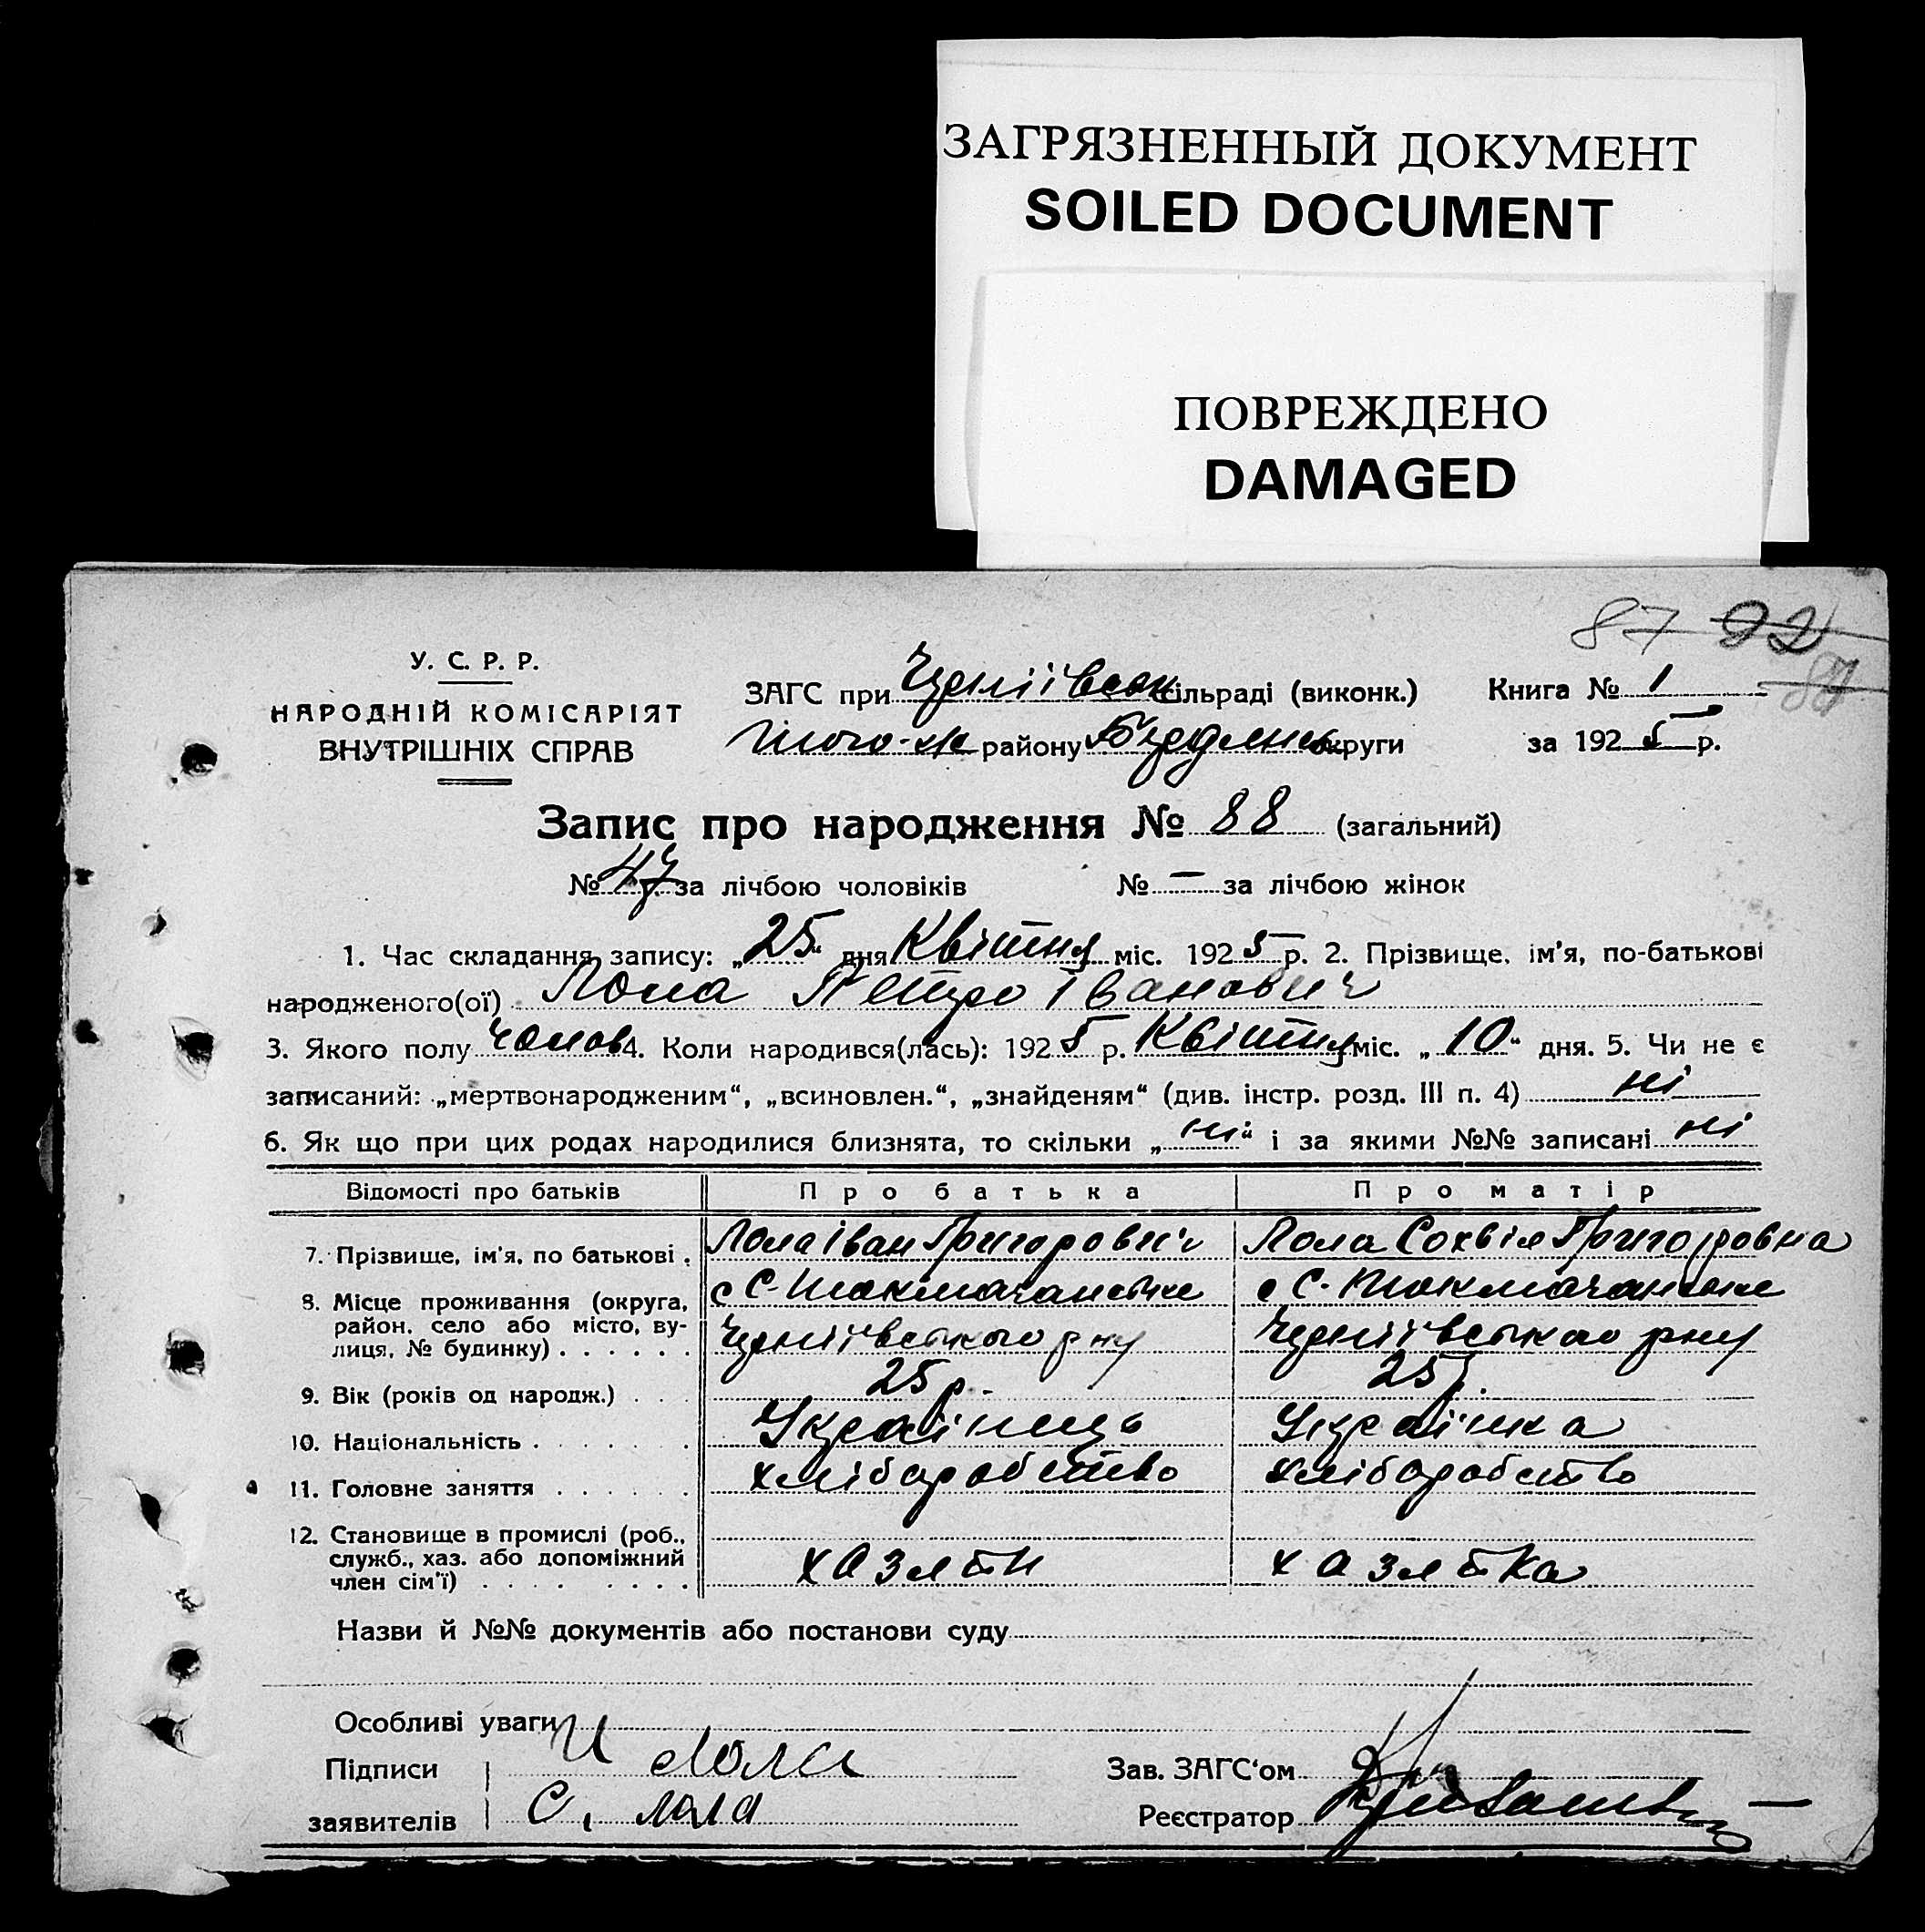 ЗАГРЯЗНЕННЫЙ ДОКУМЕНТ
SOILED DOCUMENT
ПОВРЕЖДЕНО
DAMAGED
87 92
87
У. С. Р. Р.
НАРОДНІЙ КОМІСАРІЯТ
ВНУТРІШНІХ СПРАВ
ЗАГС при сільраді (виконк.)
Книга № 1
Того-ж району Бердянс округи
за 1925 р.
Запис про народження № 88 (загальний)
№ 47 за лічбою чоловіків № — за лічбою жінок
1. Час складання запису: „25“ дня Квітня міс. 1925 р. 2. Прізвище, ім’я, по-батькові
народженого(ої) Лола Петро Іванович
3. Якого полу чолов 4. Коли народився(лась): 1925 р. Квітня міс. „10“ дня. 5. Чи не є
записаний: „мертвонародженим“, „всиновлен.“, „знайденям“ (див. інстр. розд. III п. 4) ні
6. Як що при цих родах народилися близнята, то скільки „ні“ і за якими №№ записані ні
Відомості про батьків Про батька Про матір
7. Прізвище, ім’я, по батькові . Лола Іван Григорович Лола Сохвія Григоровна
8. Місце проживання (округа, район, село або місто, вулиця, № будинку) . . . . . .
с С-Токмачанське с С-Токмачанське
Черніївського рну Черніївського рну
9. Вік (років од народж.) . . . 25 р. 25 р.
10. Національність . . . . . . . Українець Українка
11. Головне заняття . . . . . . хліборобство хліборобство
12. Становище в промислі (роб., служб., хаз. або допоміжний член сім’ї) . . . . . . . .
хазяїн хазяйка
Назви й №№ документів або постанови суду
Особливі уваги
Підписи И Лола
заявителів С. Лола
Зав. ЗАГС‘ом
Реєстратор